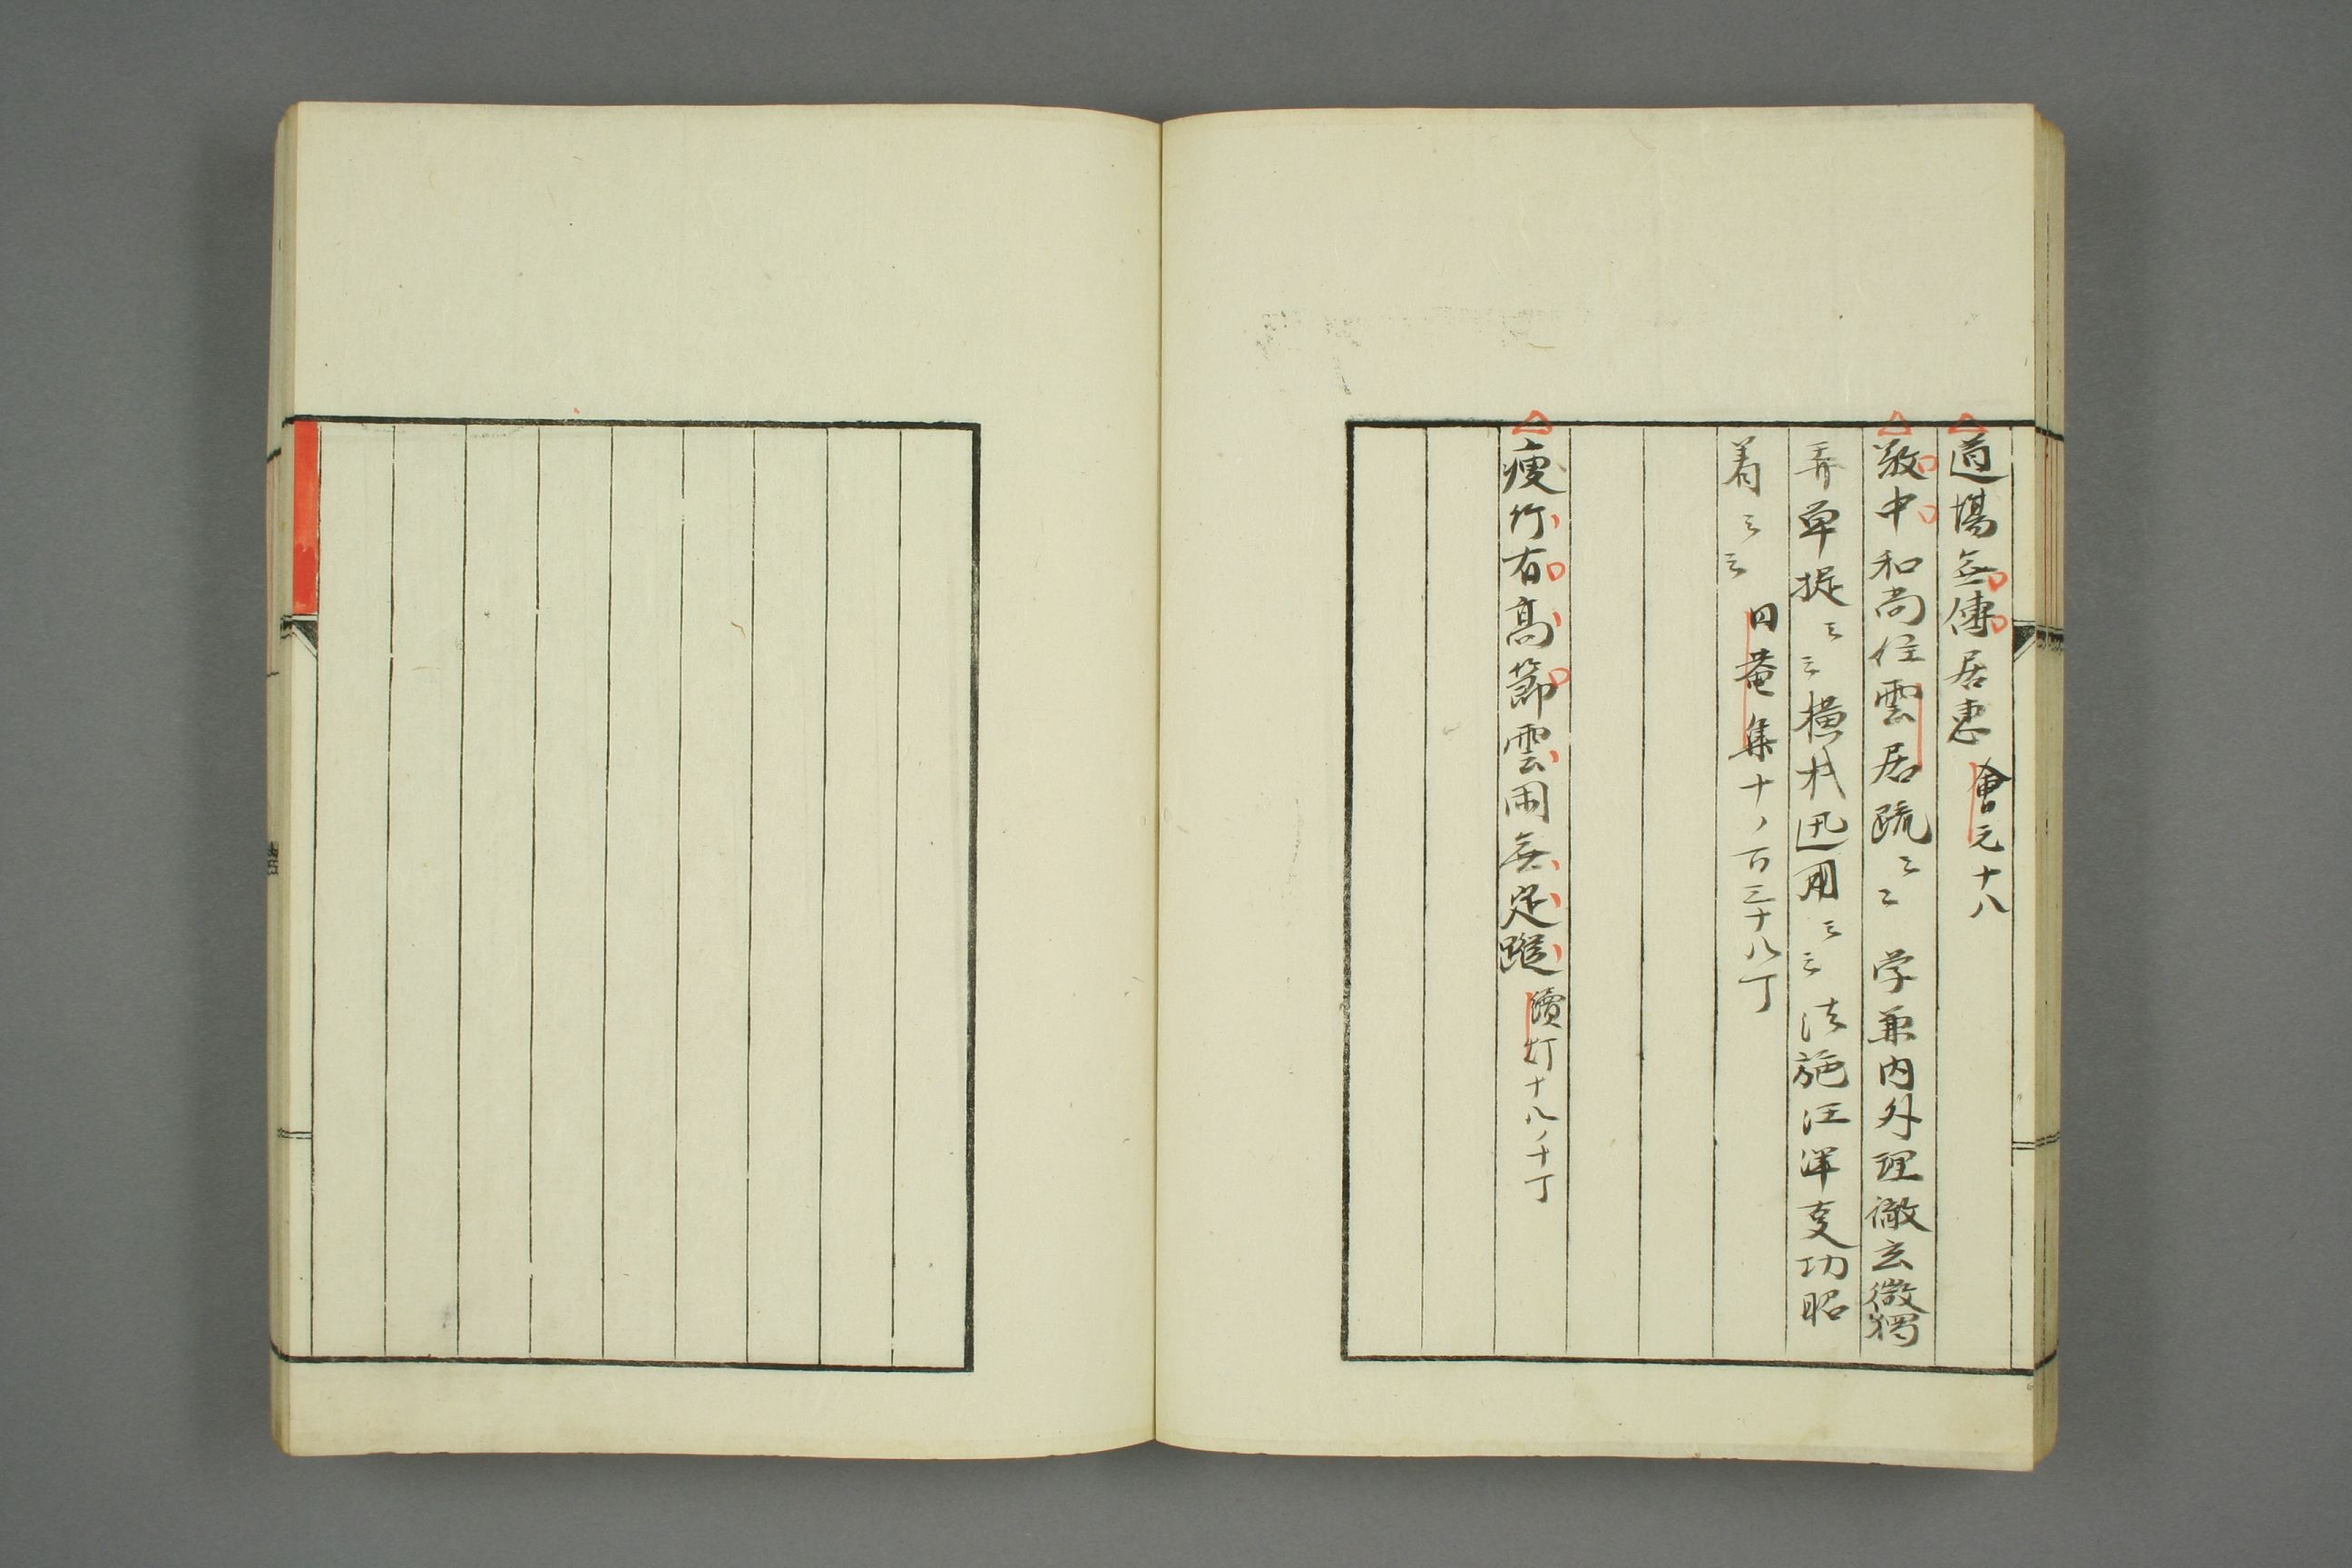 道場無傳居惠 會元十八
敬中和尚住雲居疏云云 学兼内外理徹玄微獨
弄單提云云横機迅用云云法施汪洋変功昭
着云云 円菴集十ノ百三十八丁
瘦竹有高節雲閑無定蹤 續灯十八ノ十丁